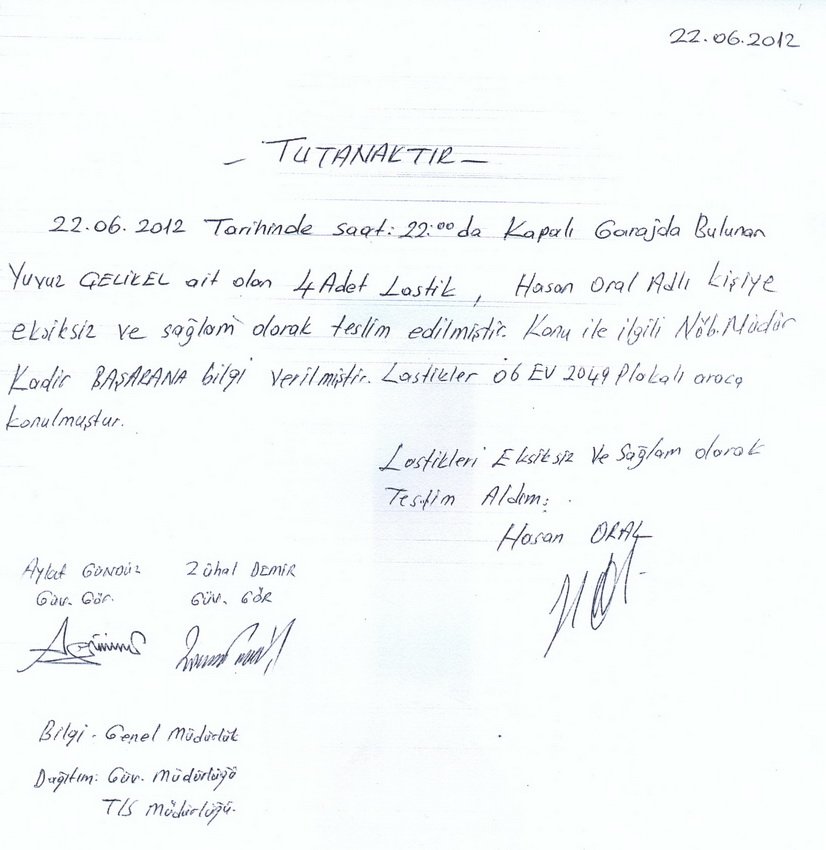 22.06.2012
- TUTANAKTIR -
22.06.2012 Tarihinde saat: 22:00 da Kapalı Garajda Bulunan
Yuvuz ÇELİKEL ait olan 4 Adet Lastik, Hasan Oral Adlı kişiye
eksiksiz ve sağlam olarak teslim edilmiştir. Konu ile ilgili Nöb. Müdür
Kadir BAŞARANA bilgi verilmiştir. Lastikler 06 EV 2049 Plakalı araca
konulmuştur.
Lastikleri Eksiksiz Ve Sağlam olarak
Teslim Aldım:
Hasan ORAL
GÜNDÜZ Zühal DEMİR
Güv. Gör. GÜV. GÖR
Bilgi - Genel Müdürlük
Dağıtım: Güv. Müdürlüğü
TİS Müdürlüğü.